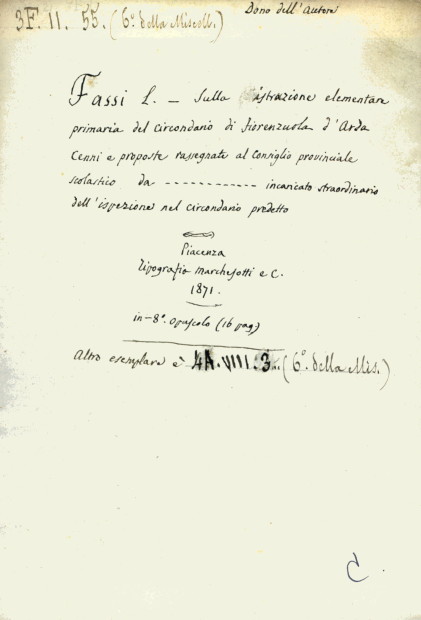 Dono dell'Autore
3F. II. 55. (6º della Miscell.)
Fassi L. — Sulla istruzione elementare
primaria del circondario di Fiorenzuola d'Arda
Cenni e proposte rassegnate al Consiglio provinciale
scolastico da ------------ incaricato straordinario
dell'ispezione nel circondario predetto
Piacenza
Tipografia Marchesotti e C.
1871.
in-8º. opuscolo (16 pag)
Altro esemplare è 4A. VIII. 3 (6º della Mis.)
C